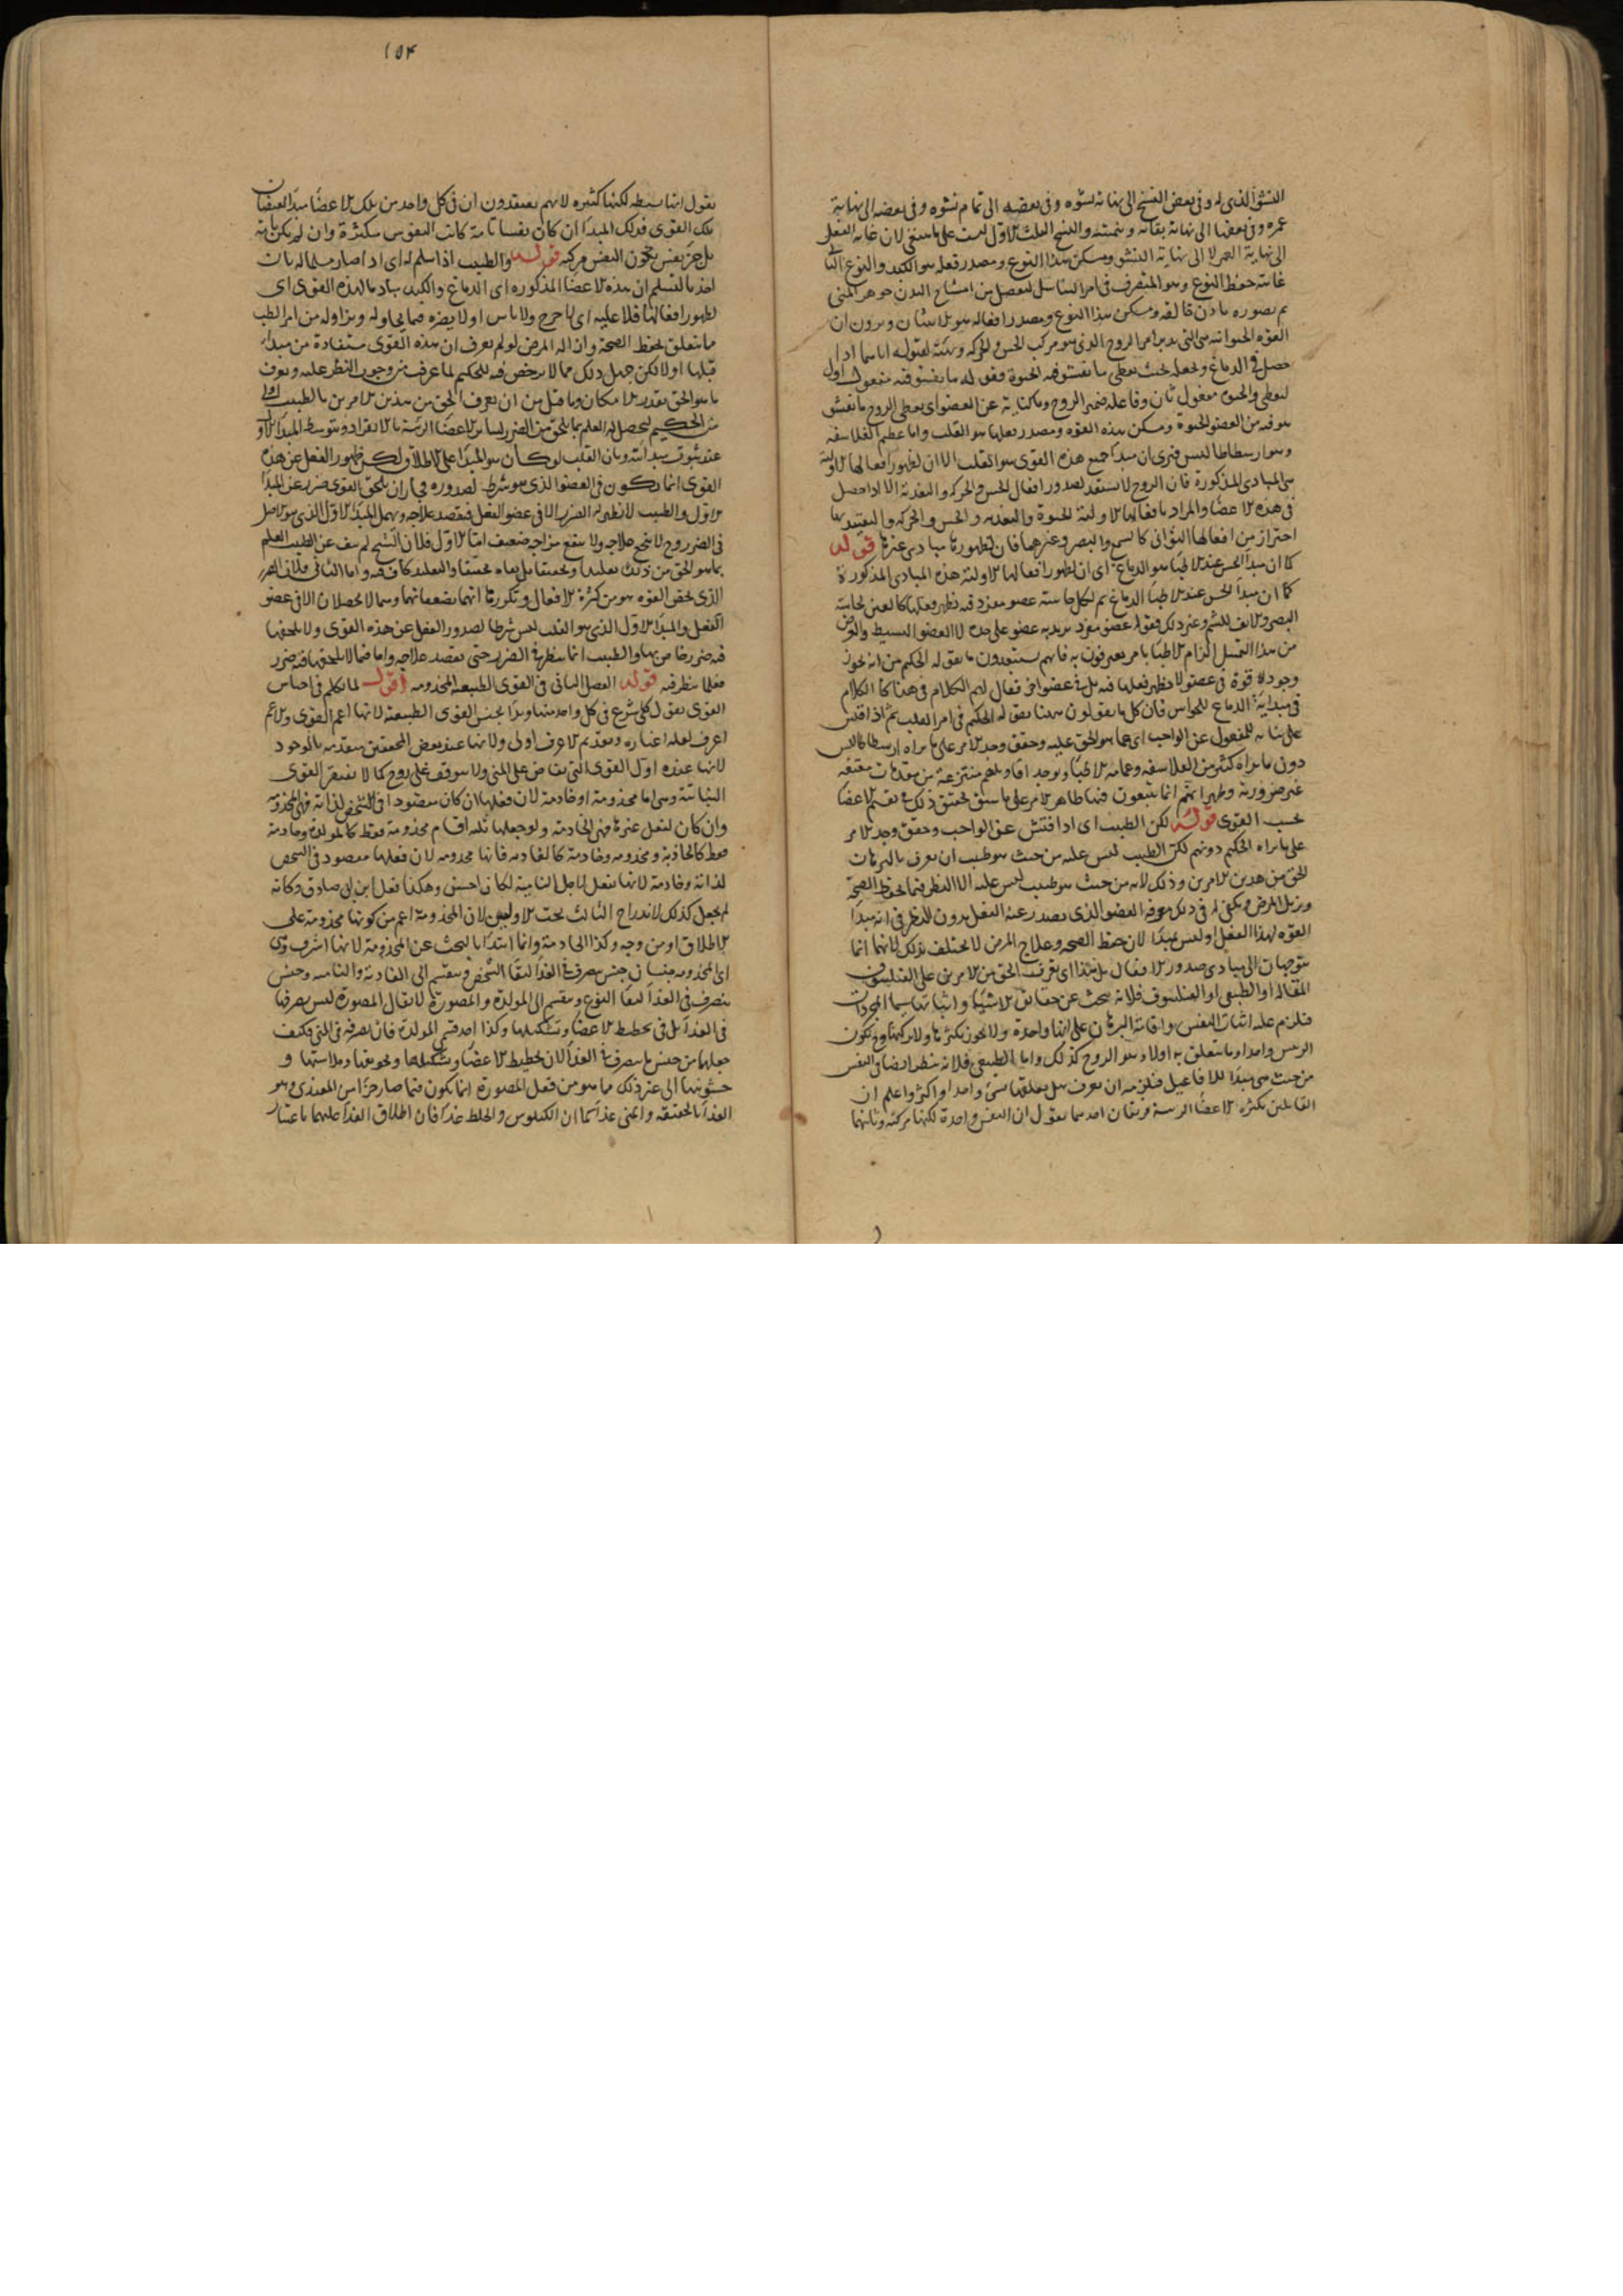 النشو الذى له وفى بعض النسخ الى نهاية نشوه وفى بعضه الى تمام نشوه وفى بعضه الى نهاية
عمره وفى بعضها الى نهاية بقائه والنسخ الثلث الاول ليست على ما ينبغى لان غاية الفعل
الى نهاية العمر لا الى نهاية النشو ومسكن هذا النوع ومصدر فعله هو الكبد والنوع الثانى
غايته حفظ النوع وهو المتصرف فى امر التناسل ليفصل من امشاج البدن جوهر المنى
ثم يصوره باذن خالقه ومسكن هذا النوع ومصدر افعاله هو الانثيان ويرون ان
القوة الحيوانية هى التى تدبر امر الروح الذى هو مركب الحس والحركة وتهيئه لقبوله اياهما اذا
حصل فى الدماغ وتجعله بحيث يعطى ما يفشو فيه الحيوة فقوله ما يفشو فيه مفعول اول
ليعطى والحيوة مفعول ثان وفاعله ضمير الروح وما كناية عن العضو اى يعطى الروح ما يفشو
هو فيه من العضو الحيوة ومسكن هذه القوة ومصدر فعلها هو القلب واما عظيم الفلاسفة
وهو ارسطاطاليس فيرى ان مبدأ جميع هذه القوى هو القلب الا ان لظهور افعالها الاولية
هى المبادى المذكورة فان الروح لا يستعد لصدور افعال الحس والحركة والتغذية الا اذا حصل
فى هذه الاعضا والمراد بافعالها الاولية الحيوة والتغذية والحس والحركة والتقييد بها
احتراز من افعالها الثوانى كالسمع والبصر وغيرهما فان لظهورها مبادى غيرها قوله
كما ان مبدأ الحس عند الاطبا هو الدماغ اى ان لظهور افعالها الاولية هذه المبادى المذكورة
كما ان مبدأ الحس عند الاطبا الدماغ ثم لكل حاسة عضو مفرد فيه يظهر فعلها كالعين لحاسة
البصر والانف للشم وغير ذلك فقوله عضو مفرد يريد به عضو على حدة لا العضو البسيط والغرض
من هذا التمثيل الزام الاطبا بامر يعترفون به فانهم يستبعدون ما يقوله الحكيم من انه يجوز
وجود قوة فى عضو لا يظهر فعلها فيه بل فى عضو اخر فقال لهم الكلام فى هذا كالكلام
فى مبدأية الدماغ للحواس فان كل ما يقولون هنا يقوله الحكيم فى امر القلب ثم اذا فتش
على بنائه للمفعول عن الواجب اى عما هو الحق عليه وحقق وجد الامر على ما يراه ارسطاطاليس
دون ما يراه كثير من الفلاسفة وعامة الاطبا ويوجد اقاويلهم منتزعة من مقدمات مقنعة
غير ضرورية وظهر انهم انما يتبعون فيها ظاهر الامر على ما سبق تحقيق ذلك فى تقسيم الاعضا
بحسب القوى قوله لكن الطبيب اى اذا فتش عن الواجب وحقق وجد الامر
على ما يراه الحكيم دونهم لكن الطبيب ليس عليه من حيث هو طبيب ان يعرف بالبرهان
الحق من هذين الامرين وذلك لانه من حيث هو طبيب ليس عليه الا النظر فيما يحفظ الصحة
ويزيل المرض ويكفى له فى ذلك معرفة العضو الذى يصدر عنه الفعل بدون النظر فى انه مبدأ
القوة لهذا الفعل او ليس بمبدأ لان حفظ الصحة وعلاج المرض لا يختلف بذلك لانهما انما
يتوجهان الى مبادى صدور الافعال بل هذا اى تعرف الحق من الامرين على الفيلسوف
فلانه يبحث عن حقايق الاشيا واثباتها سيما المجردات
فيلزم عليه اثبات النفس واقامة البرهان على انها واحدة ولا يجوز تكثرها ولا تركيبها فيكون
الرئيس واحدا وما يتعلق به اولا وهو الروح كذلك واما الطبيعى فلانه ينظر ايضا فى النفس
من حيث هى مبدأ للافاعيل فيلزمه ان يعرف هل متعلقها شئ واحد او اكثر واعلم ان
القائلين بكثرة الاعضا الرئيسة فريقان احدهما يقول ان النفس واحدة لكنها مركبة وثانيهما
١٥٤
يقول انها بسيطة لكنها كثيرة لانهم يعتقدون ان فى كل واحد من تلك الاعضا مبدأ لفيضان
تلك القوى فذلك المبدأ ان كان نفسا تامة كانت النفوس متكثرة وان لم يكن تامة
بل جزء نفس فيكون النفس مركبة قوله والطبيب اذا سلم له اى اذا صار مسلما له بان
اخذ بالتسليم ان هذه الاعضا المذكورة اى الدماغ والكبد مباد لهذه القوى اى
لظهور افعالها فلا عليه اى لا حرج ولا باس او لا يضره فيما يحاوله ويزاوله من امر الطب
ما يتعلق بحفظ الصحة وازالة المرض لو لم يعرف ان هذه القوى مستفادة من مبدأ
قبلها او لا لكن جهل ذلك مما لا يرخص فيه للحكيم لما عرف من وجوب النظر عليه وتعرف
ما هو الحق بقدر الامكان وما قيل من ان تعرف الحق من هذين الامرين بالطبيب اولى
من الحكيم ليحصل له العلم بما يلحق من الضرر لسائر الاعضا الرئيسة بالانفراد وبتوسط المبدأ الاول
عند ثبوت مبدأيته وبان القلب لو كان هو المبدأ على الاطلاق ولكن ظهور الفعل عن هذه
القوى انما يكون فى العضو الذى هو شرط لصدوره فجاز ان يلحق القوى ضرر عن المبدأ
الاول والطبيب لا يظهر له الضرر الا فى عضو الفعل فيقصد علاجه ويهمل المبدأ الاول الذى هو الاصل
فى الضرر وح لا ينجح علاجه ولا ينفع مزاجه ضعيف اما الاول فلان الشيخ لم ينف عن الطبيب العلم
بما هو الحق من ذلك تقليدا وتحقيقا بل نفاه تحقيقا والتقليد كاف فيه واما الثانى فلان الضرر
الذى يخص القوة هو من كثرة الافعال وتكررها انهما يضعفانها وهما لا يحصلان الا فى عضو
الفعل والمبدأ الاول الذى هو القلب ليس شرطا لصدور الفعل عن هذه القوى ولا يلحقها
فيه ضرر خاص بها والطبيب انما ينظر فى الضرر حتى يقصد علاجه واما فيما لا يلحقها فيه ضرر
فقلما ينظر فيه قوله الفصل الثانى فى القوى الطبيعية المخدومة اقول لما تكلم فى اجناس
القوى بقول كلى شرع فى كل واحد منها وبدأ بجنس القوى الطبيعية لانها اعم القوى والاعم
اعرف لقلة اغياره وتقديم الاعرف اولى ولانها عند بعض المحققين متقدمة بالوجود
لانها عنده اول القوى التى تفاض على المنى ولا يتوقف على روح كما لا يفتقر القوى
النباتية وهى اما مخدومة او خادمة لان فعلها ان كان مقصودا فى الشخص لذاته فهى المخدومة
وان كان لفعل غيرها فهى الخادمة ولو جعلها ثلثة اقسام مخدومة فقط كالمولدة وخادمة
فقط كالجاذبة ومخدومة وخادمة كالغاذية فانها مخدومة لان فعلها مقصود فى الشخص
لذاته وخادمة لانها تفعل لاجل النامية لكان احسن وهكذا فعل ابن ابى صادق وكانه
لم يجعل كذلك لاندراج الثالث تحت الاولين لان المخدومة اعم من كونها مخدومة على
الاطلاق او من وجه وكذا الخادمة وانما ابتدأ بالبحث عن المخدومة لانها اشرف وهى
اى المخدومة جنسان جنس يتصرف فى الغذا لبقا الشخص وينقسم الى الغاذية والنامية وجنس
يتصرف فى الغذا لبقا النوع وينقسم الى المولدة والمصورة لا يقال المصورة ليس تصرفها
فى الغذا بل فى تخطيط الاعضا وتشكيلها وكذا احد قسمى المولدة فان تصرفه فى المنى فكيف
جعلها من جنس ما يتصرف فى الغذا لان تخطيط الاعضا وتشكيلها وتجويفها وملاستها و
خشونتها الى غير ذلك مما هو من فعل المصورة انما يكون فيما صار جزءا من المغتذى وهو
الغذا بالحقيقة والمنى غذا كما ان الكيلوس والخلط غذا فان اطلاق الغذا عليهما باعتبار